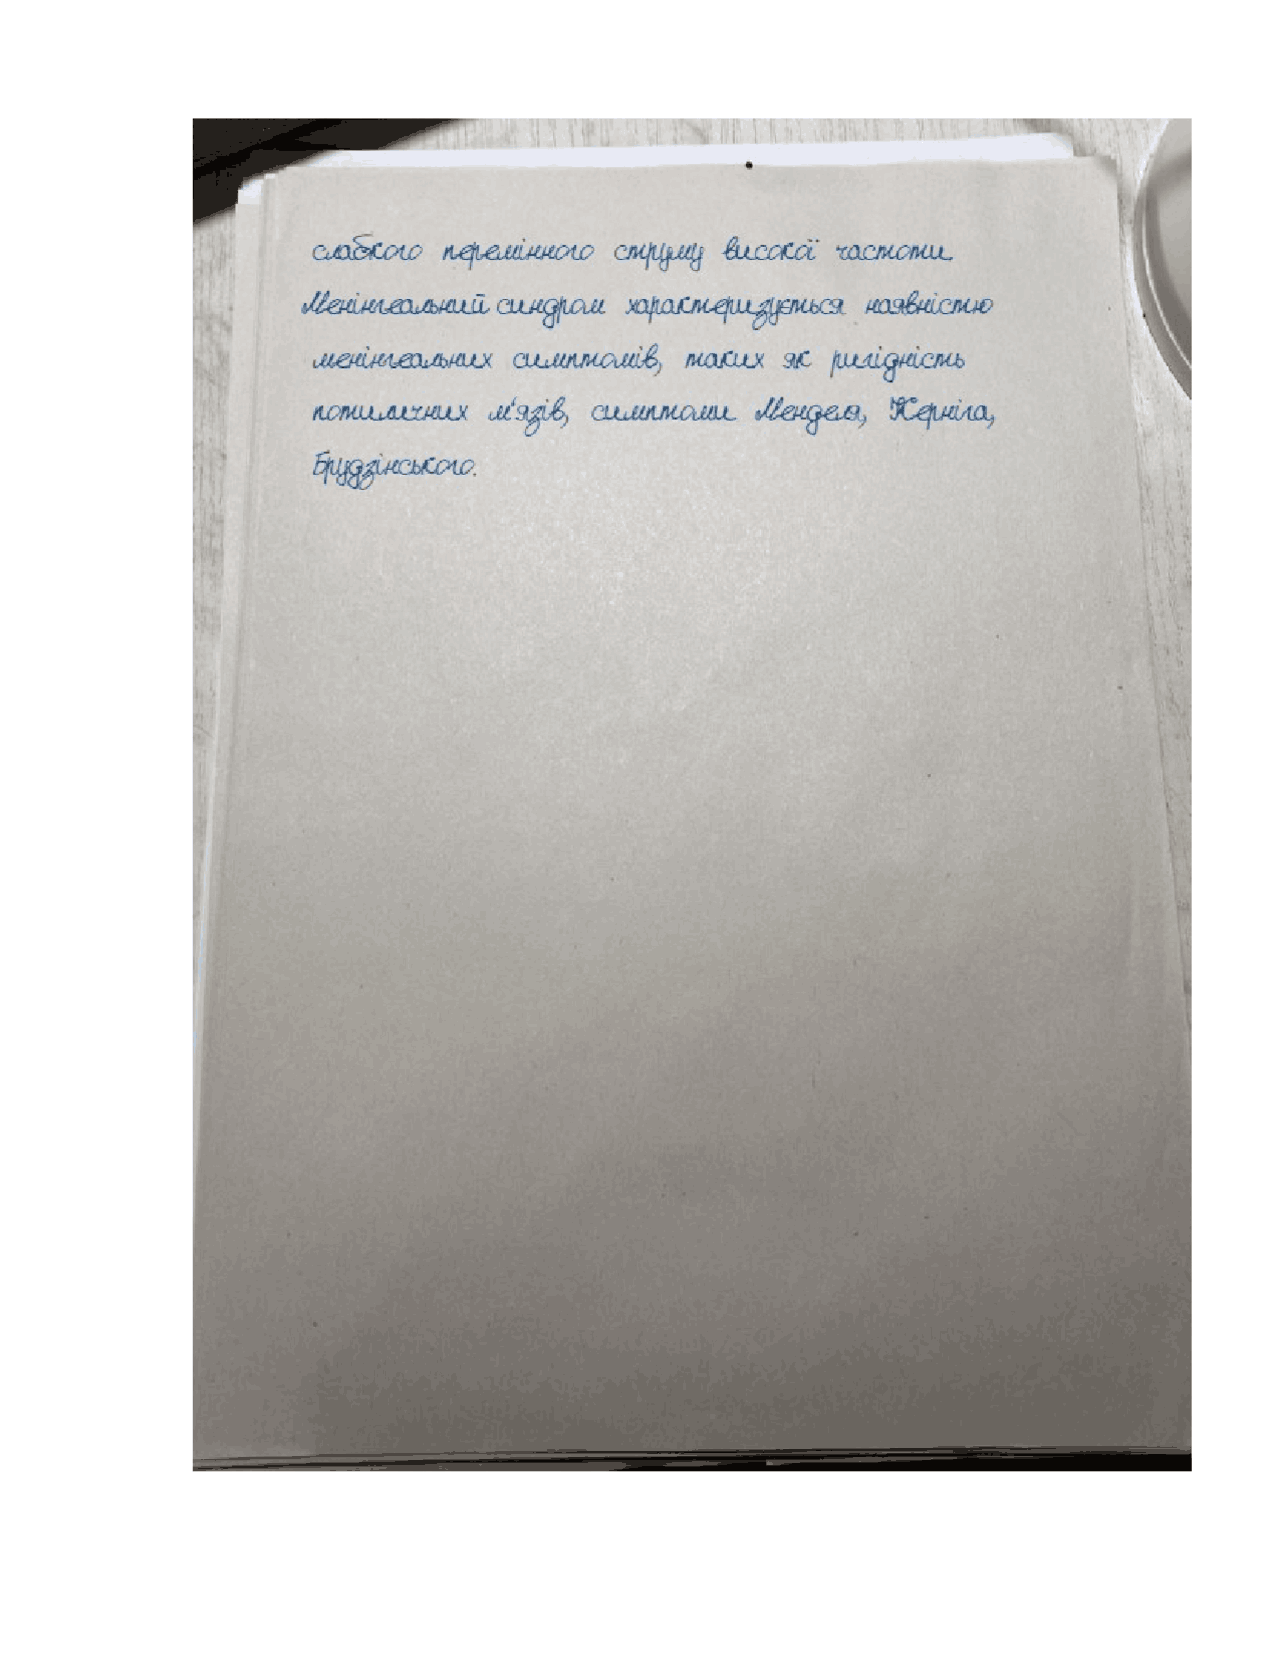 слабкого перемінного струму високої частоти.
Менінгеальний синдром характеризується наявністю
менінгеальних симптомів, таких як ригідність
потиличних м'язів, симптоми Менделя, Керніга,
Брудзінського.